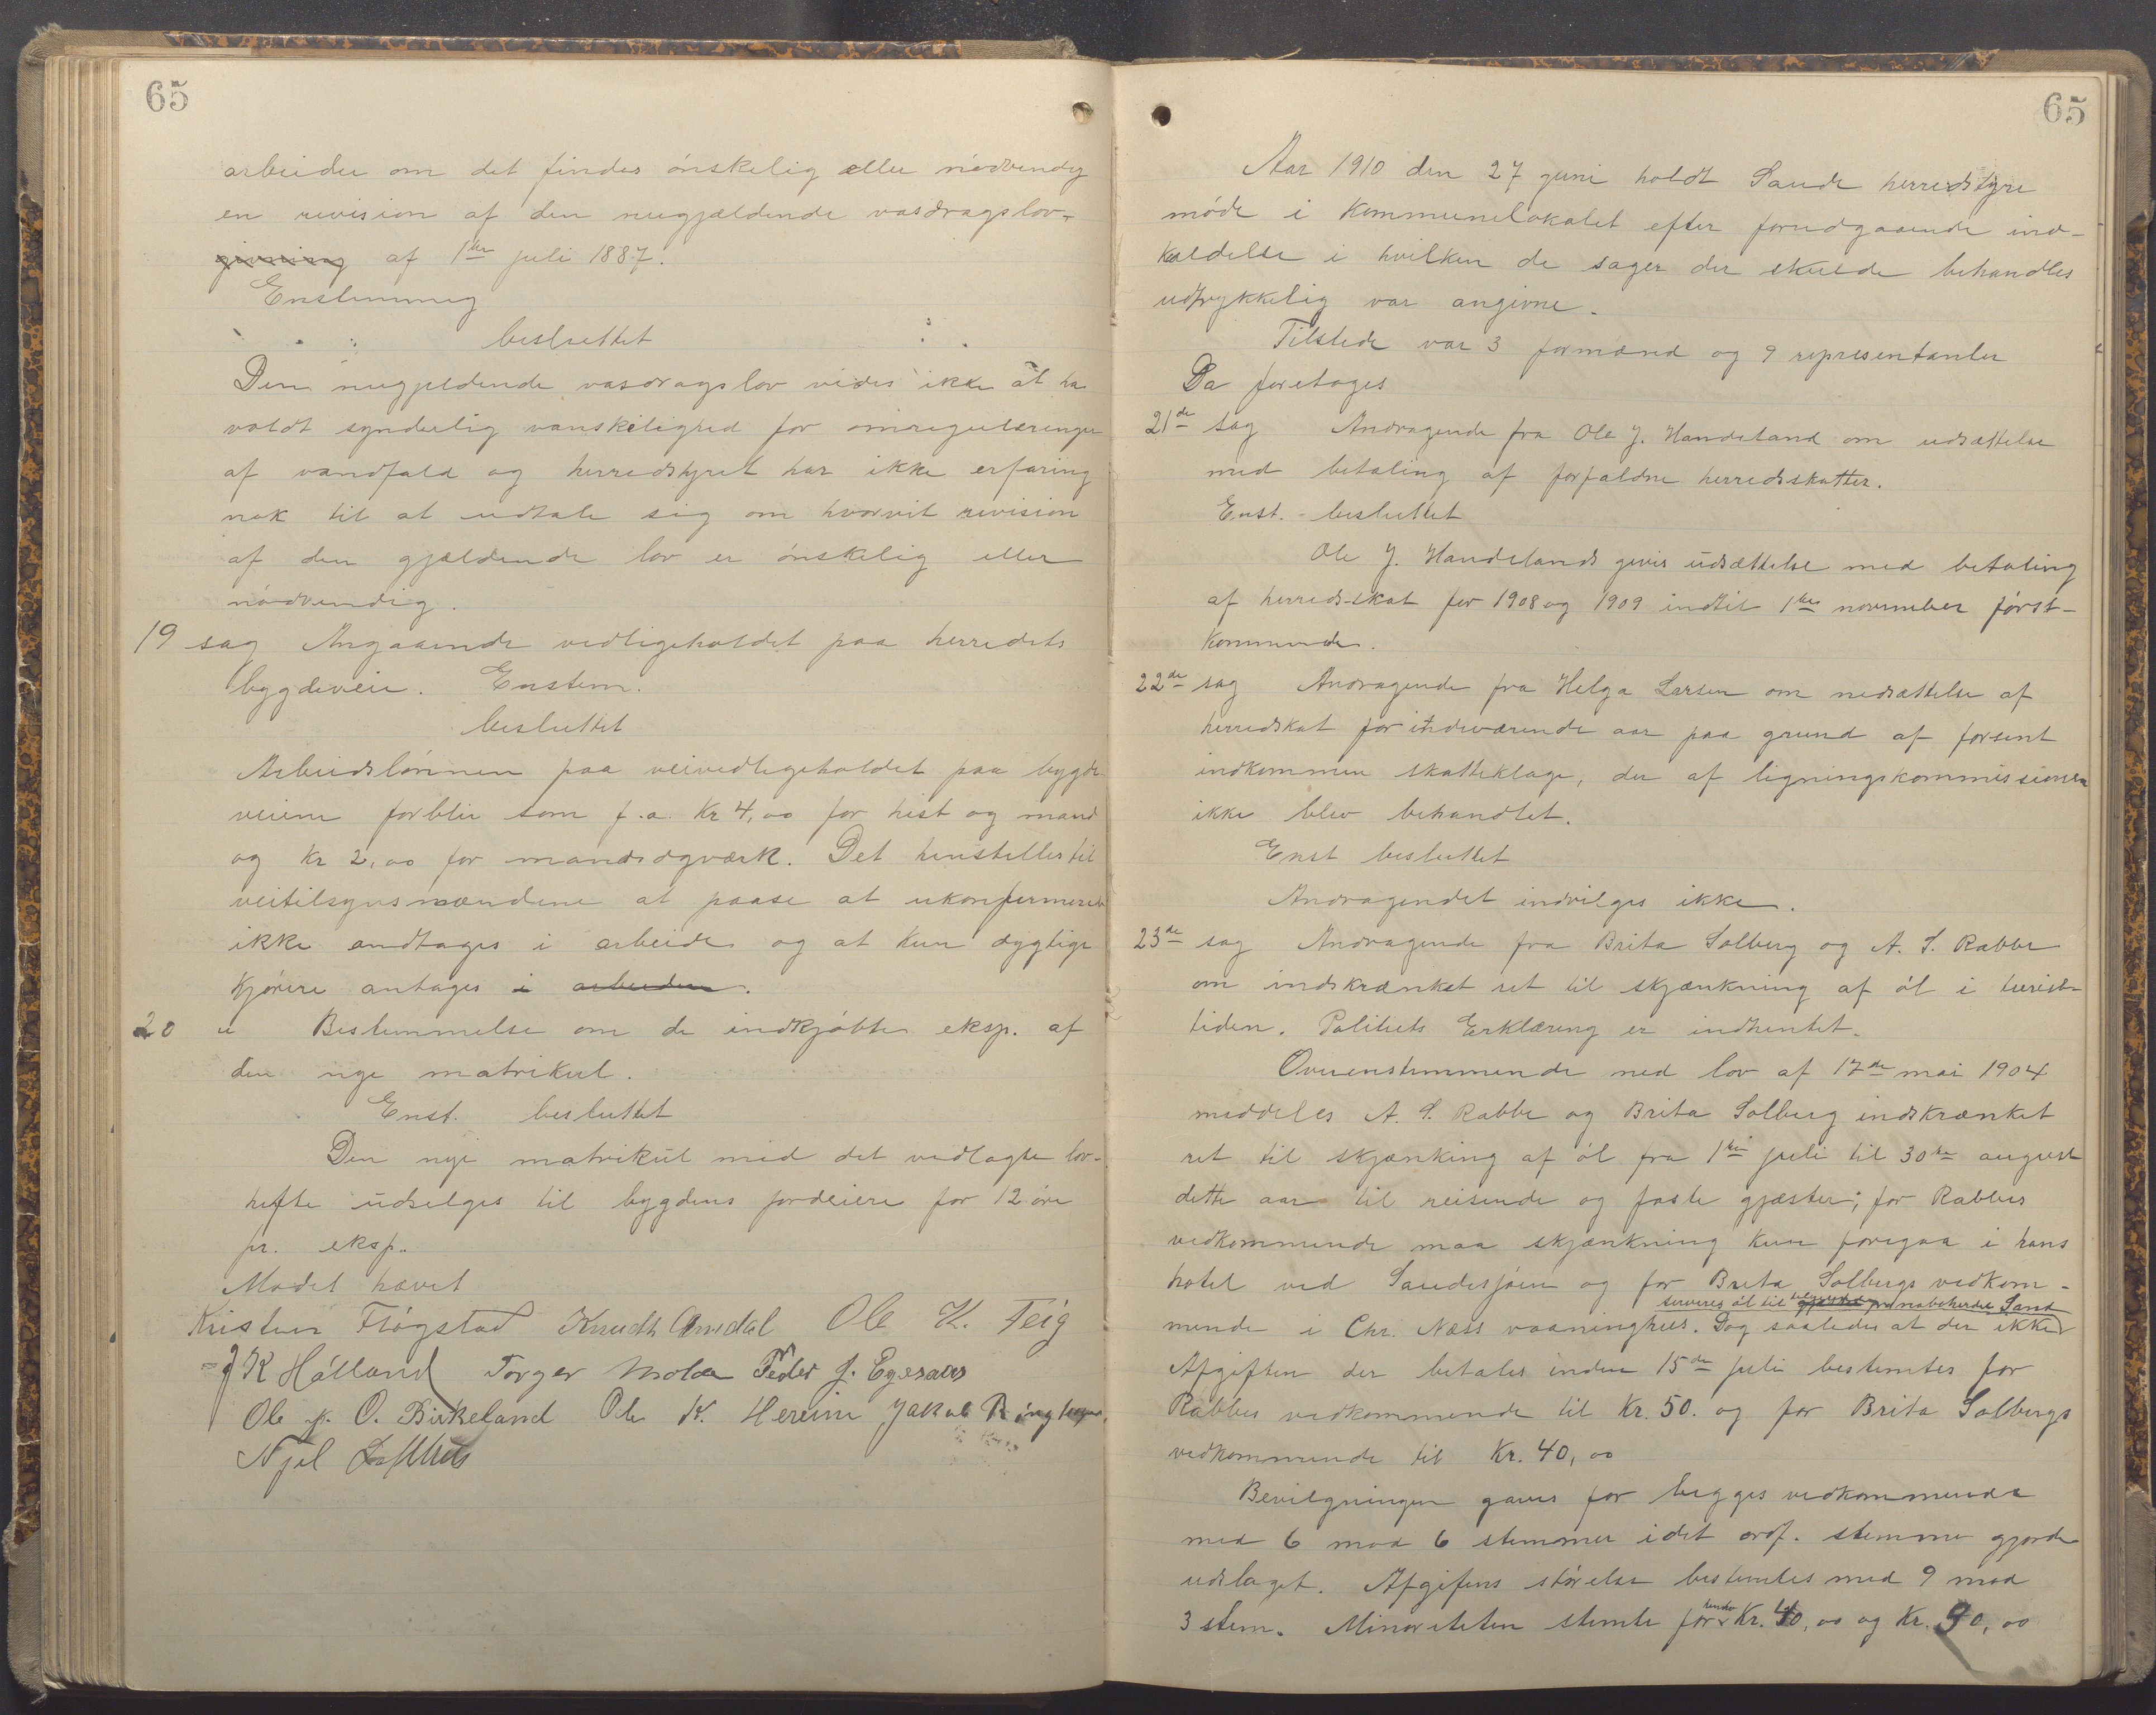 65
arbeider om det findes ønskelig eller nødvendig
en revision af den nugjældende vasdragslov-
givning af 1ste juli 1887.
Enstemmig
besluttet
Den nugjeldende vasdragslov vides ikke at ha
voldt synderlig vanskelighed for omreguleringer
af vandfald og herredstyret har ikke erfaring
nok til at udtale sig om hvorvit revision
af den gjældende lov er ønskelig eller
nødvendig.
19 sag Angaaende vedligeholdet paa herredets
bygdeveie. Enstem.
besluttet
Arbeidslønnen paa veivedligeholdet paa bygde
veiene forblir som f.a. Kr 4,00 for hest og mand
og Kr 2,00 for mandsdgværk. Det henstilles til
veitilsynsmændene at paase at ukonfermerede
ikke andtages i arbeide og at kun dygtige
Kjørere antages i arbeiden.
20 " Bestemmelse om de indkjøbte eksp. af
den nye matrikul.
Enst. besluttet
Den nye matrikul med det vedlagte lov-
hefte udselges til bygdens jordeiere for 12 øre
pr. eksp.
Mødet hævet
Kristen Fløgstad Knudth Amdal Ole K. Teig
J K Hålland Torger Molda Peder J. Egesaas
Ole K. O. Birkeland Ole K. Hereim Jakob
Njel Lofthus
65
Aar 1910 den 27 juni holdt Saude herredstyre
møde i Kommunelokalet efter forudgaaende ind-
kaldelse i hvilken de sager der skulde behandles
udtrykkelig var angivne.
Tilstede var 3 formænd og 9 representanter
Da foretoges
21de sag Andragende fra Ole J. Handeland om udsættelse
med betaling af forfaldne herredsskatter.
Enst. besluttet
Ole J. Handelands gives udsættelse med betaling
af herreds-skat for 1908 og 1909 indtil 1ste november først-
Kommende.
22de sag Andragende fra Helga Larsen om nedsættelse af
herredskat for indeværende aar paa grund af forsent
indkommen skatteklage, der af ligningskommissionen
ikke blev behandlet.
Enst besluttet
Andragendet indvilges ikke.
23de sag Andragende fra Brita Solberg og A. S. Rabbe
om indskrænket ret til skjænkning af øl i turist-
tiden. Politiets Erklæring er indhentet.
Overenstemmende med lov af 17de mai 1904
meddeles A. S. Rabbe og Brita Solberg indskrænket
ret til skjænking af øl fra 1ste juli til 30te august
dette aar til reisende og faste gjæster; for Rabbes
vedkommende maa skjænkning kun foregaa i hans
hotel ved Saudesjøen og for Brita Solbergs vedkom-
serveres øl til gjæster fra naboherder Sand
mende i Chr. Næss vaaninghus. Dog saaledes at der ikke
Afgiften der betales inden 15de juli bestemtes for
Rabbes vedkommende til Kr. 50. og for Brita Solbergs
vedkommende til Kr. 40,00
Bevilgningen gaves for begges vedkommende
med 6 mod 6 stemmer idet ordf. stemme gjorde
udslaget. Afgifens størelse bestemtes med 9 mod
3 stem. Minoriteten stemte for Kr. 40,00 og Kr. 90,00